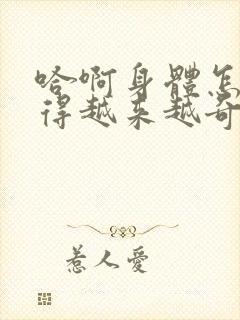 哈啊身體怎
得越来越奇
惹人愛